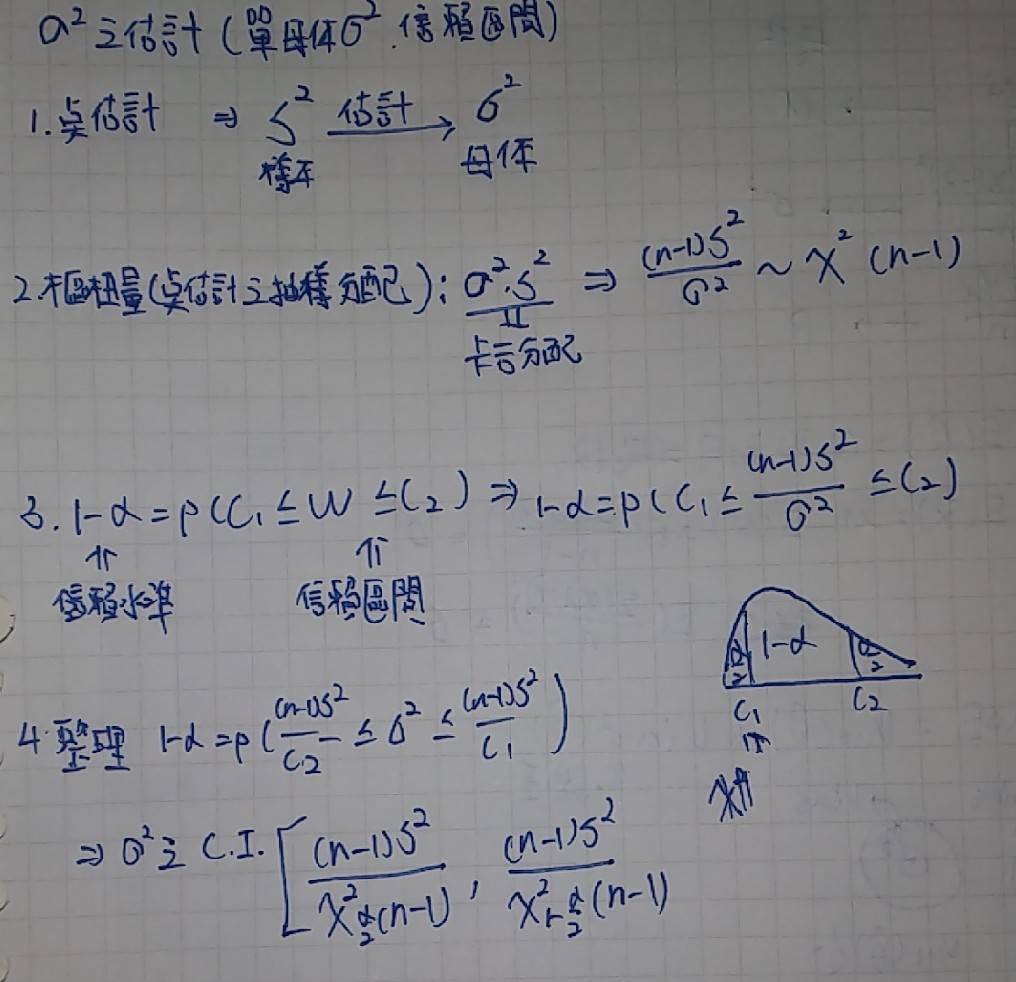 σ²之估計(單母体σ².信賴區間)
1.点估計 ⇒ S² 估計→ σ²
樣本 母体
2.樞杻量(点估計之抽樣分配): σ².S² ⇒ (n-1)S²/σ² ~ χ² (n-1)
卡方分配
3. 1-α=P(C₁≤W≤C₂) ⇒ 1-α=P(C₁≤(n-1)S²/σ²≤C₂)
信賴水準 信賴區間
1-α α/2 α/2
C₁ C₂
4.整理 1-α=P((n-1)S²/C₂≤σ²≤(n-1)S²/C₁)
⇒ σ²之 C.I. [(n-1)S²/χ²α/2(n-1), (n-1)S²/χ²1-α/2(n-1)